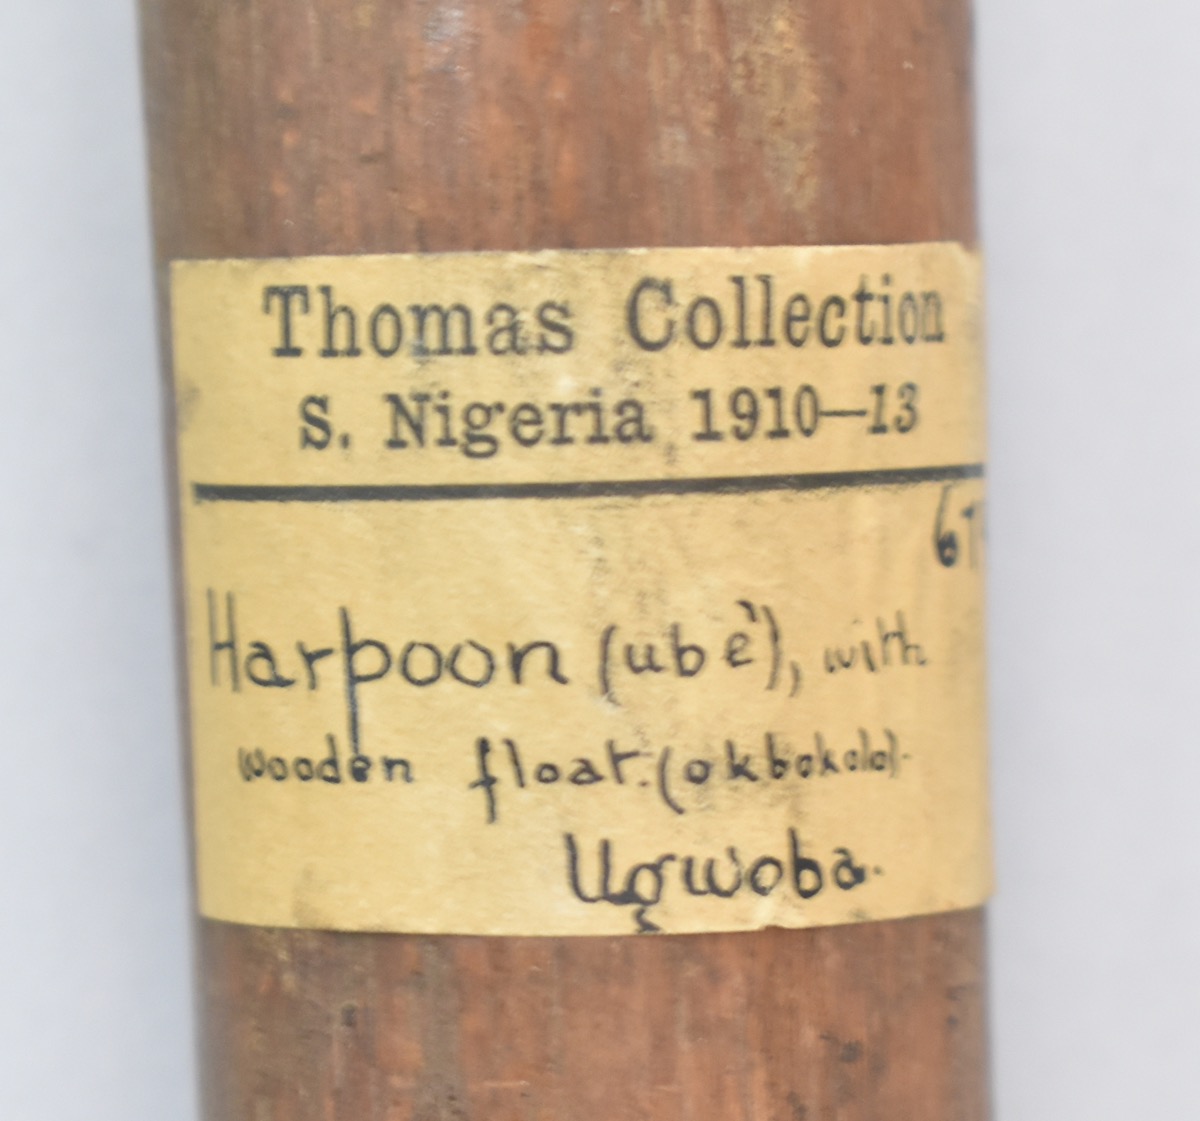 Thomas Collection
S. Nigeria 1910—13
Harpoon (ubè), with
wooden float. (okbokolo).
Ugwoba.